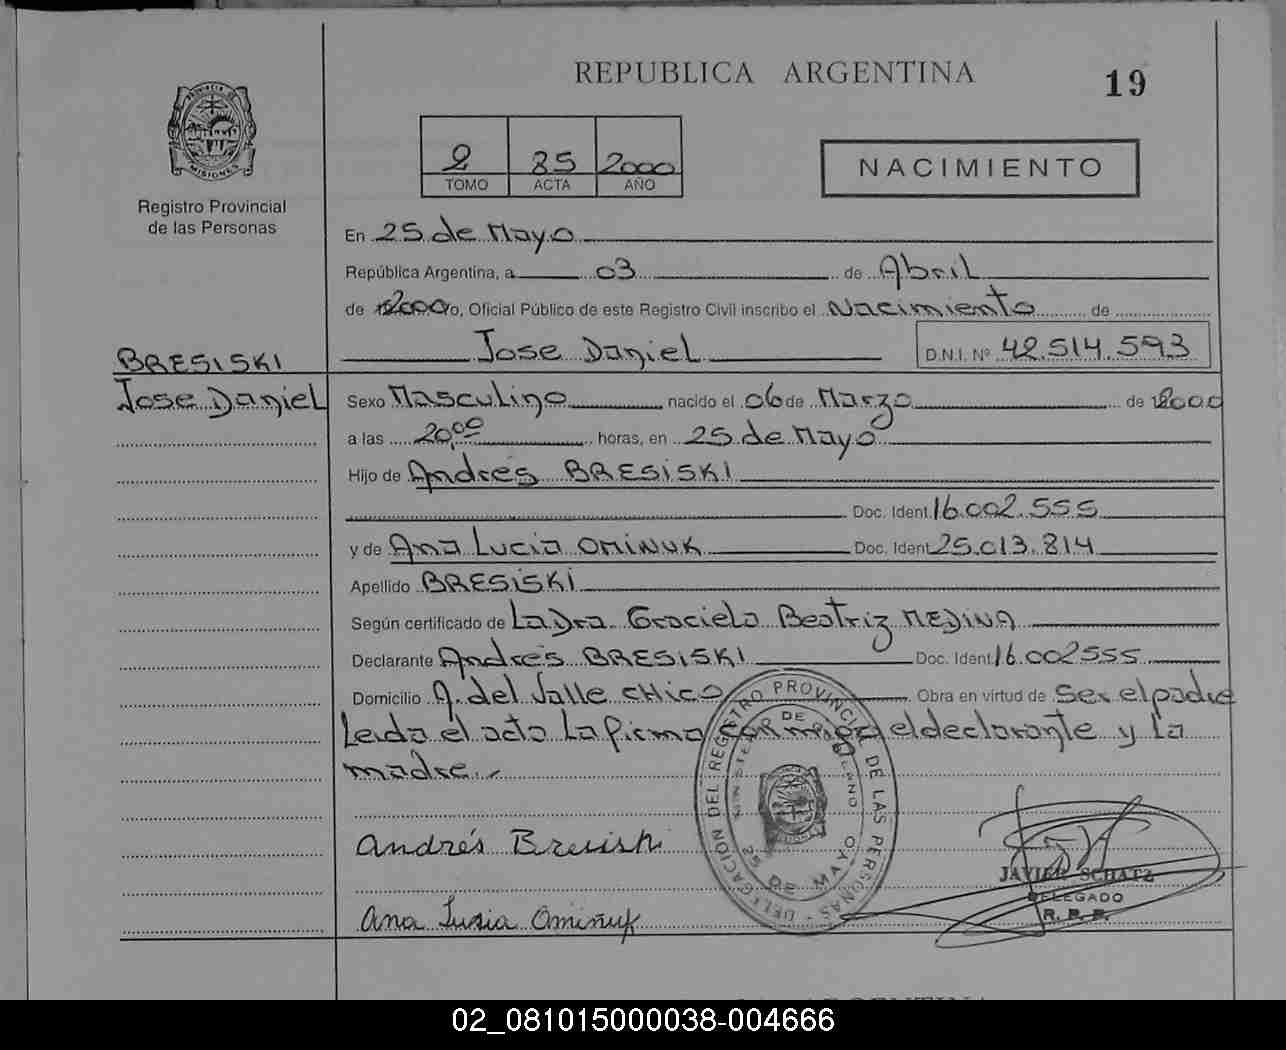 REPUBLICA ARGENTINA
19
PROVINCIA DE
MISIONES
Registro Provincial
de las Personas
2 85 2000
TOMO ACTA AÑO
NACIMIENTO
En 25 de Mayo
República Argentina, a 03 de Abril
de 2000 yo, Oficial Público de este Registro Civil inscribo el Nacimiento de
Jose Daniel D.N.I. Nº 42.514.593
BRESISKI
Jose Daniel
Sexo Masculino nacido el 06 de Marzo de 2000
a las 20,00 horas, en 25 de Mayo
Hijo de Andres BRESISKI
Doc. Ident. 16.002.555
y de Ana Lucia OMINUK Doc. Ident. 25.013.814
Apellido BRESISKI
Según certificado de La Dra. Graciela Beatriz MEDINA
Declarante Andres BRESISKI Doc. Ident. 16.002555
Domicilio A. del Valle CHICO Obra en virtud de Ser el padre
Leida el acta La firma conmigo el declarante y La
madre.-
DELEGACION DEL REGISTRO PROVINCIAL DE LAS PERSONAS
MINISTERIO DE GOBIERNO
25 DE MAYO
Andrés Bresiski
JAVIER SCHATZ
DELEGADO
R. P. P.
Ana Lusia Ominuk
02_081015000038-004666